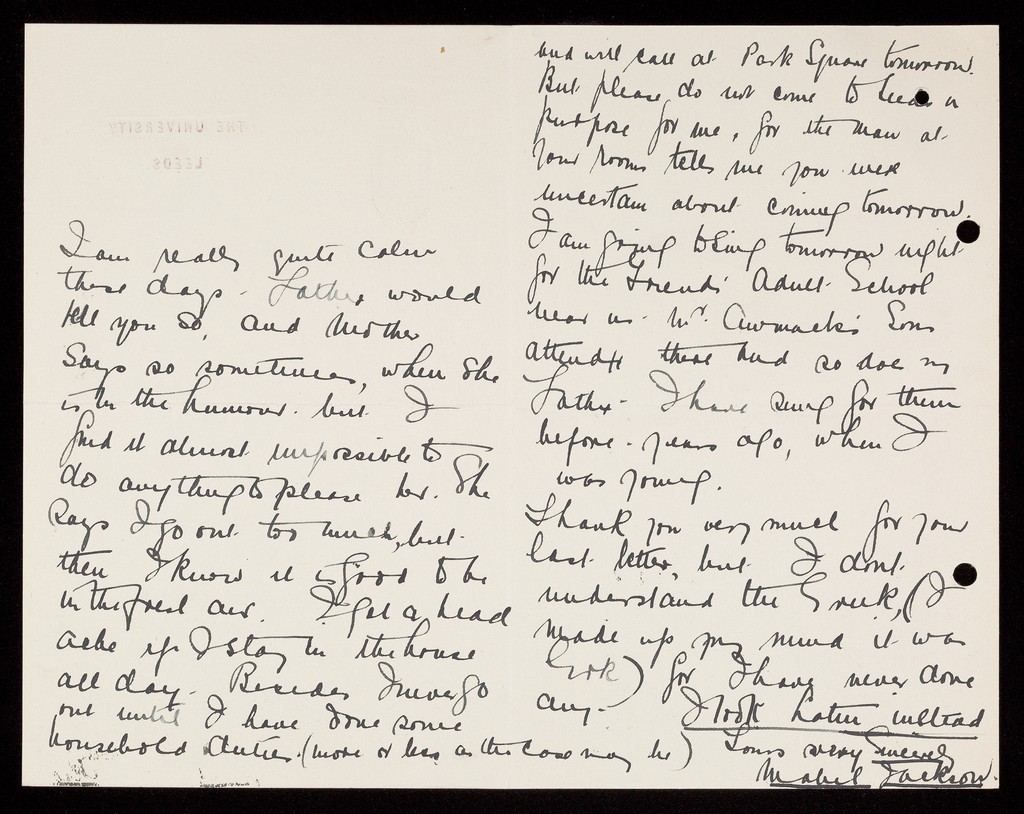 THE UNIVERSITY
LEEDS
I am really quite calm
these days - Father would
tell you so, and Mother
Says so sometimes, when she
is in the humour. but I
find it almost impossible to
do anything to please her. She
Says I go out too much, but
then I know it is good to be
in the fresh air. I get a head
ache if I stay in the house
all day. Besides I never go
out until I have done some
household duties. (more or less as the case may be)
and will call at Park Square tomorrow.
But please do not come to Leeds on
purpose for me, for the man at
your rooms tells me you were
uncertain about coming tomorrow.
I am going to sing tomorrow night
for the Friends' Adult School
near us. Mr. Awmack's Sons
attend there and so does my
Father - I have sung for them
before - years ago, when I
was young.
Thank you very much for your
last letter, but I dont
understand the Greek, (I
made up my mind it was
) for I have never done
any - I took Latin instead
Yours very sincerely
Mabel Jackson.